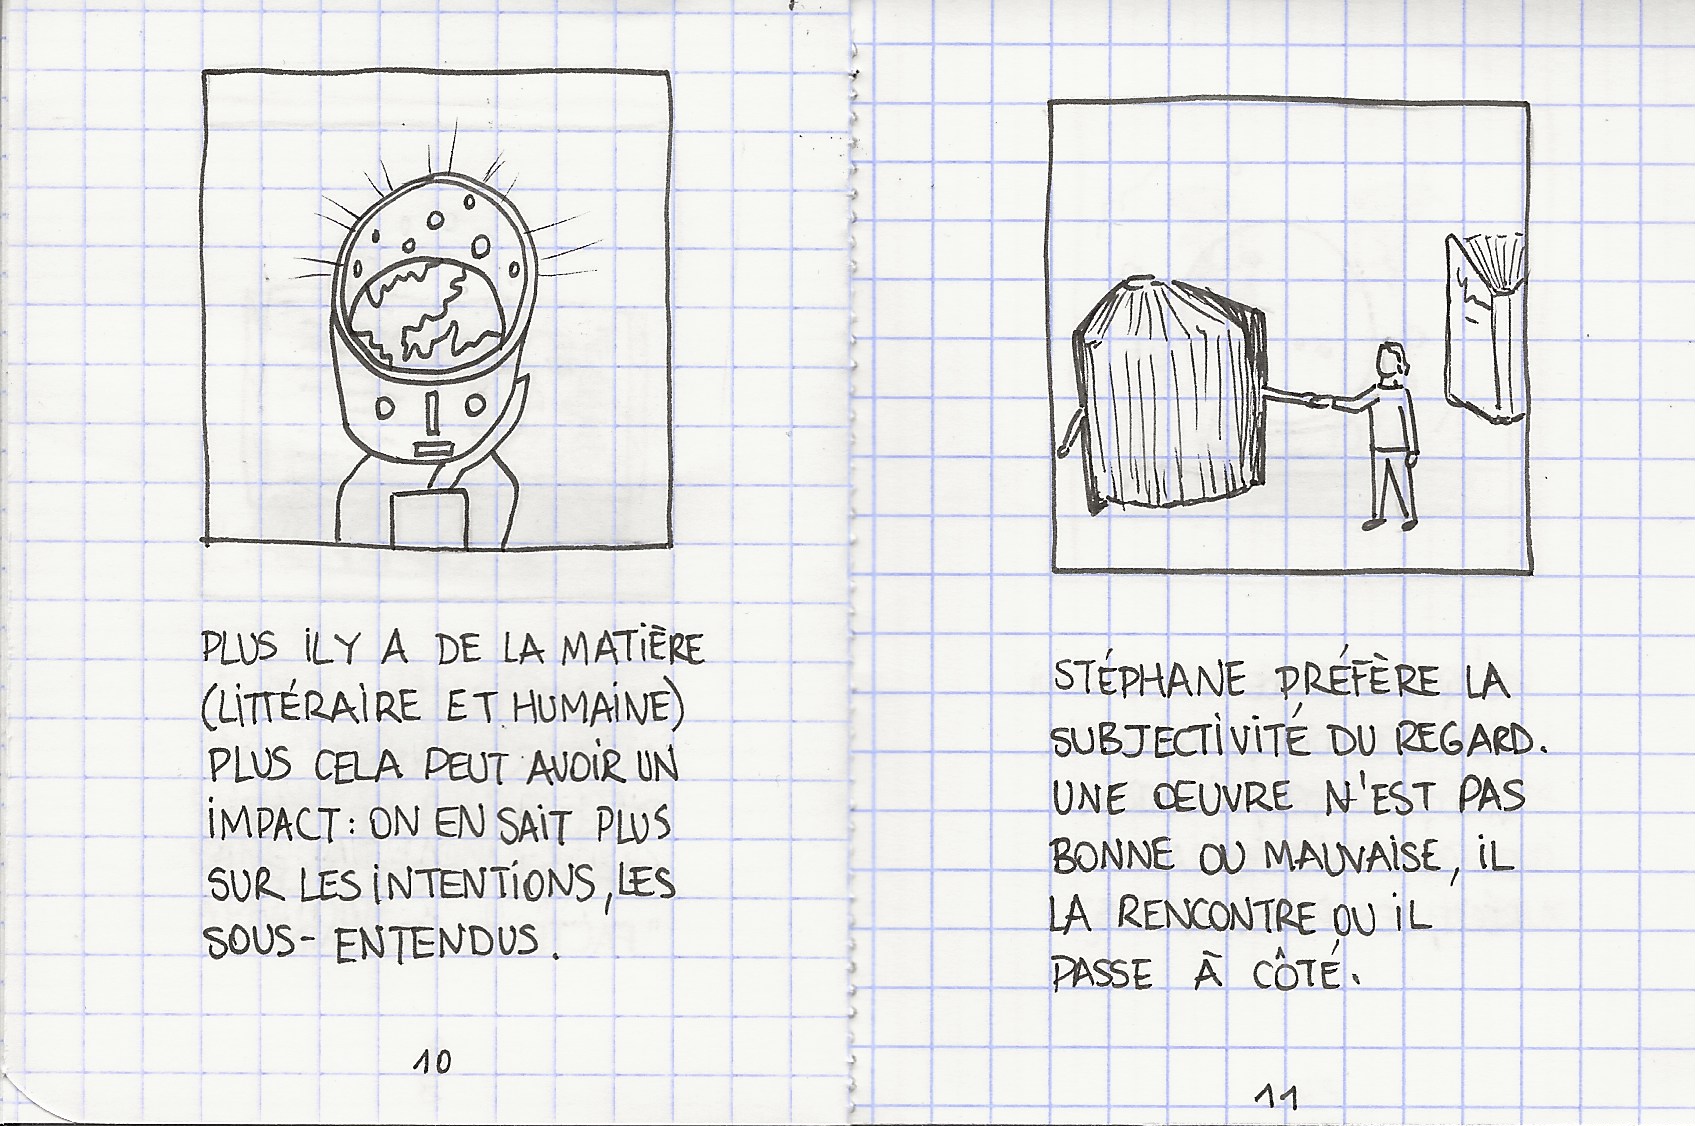 PLUS IL Y A DE LA MATIÈRE
(LITTÉRAIRE ET HUMAINE)
PLUS CELA PEUT AVOIR UN
IMPACT : ON EN SAIT PLUS
SUR LES INTENTIONS, LES
SOUS-ENTENDUS.
10
STÉPHANE PRÉFÈRE LA
SUBJECTIVITÉ DU REGARD.
UNE ŒUVRE N'EST PAS
BONNE OU MAUVAISE, IL
LA RENCONTRE OU IL
PASSE À CÔTÉ.
11